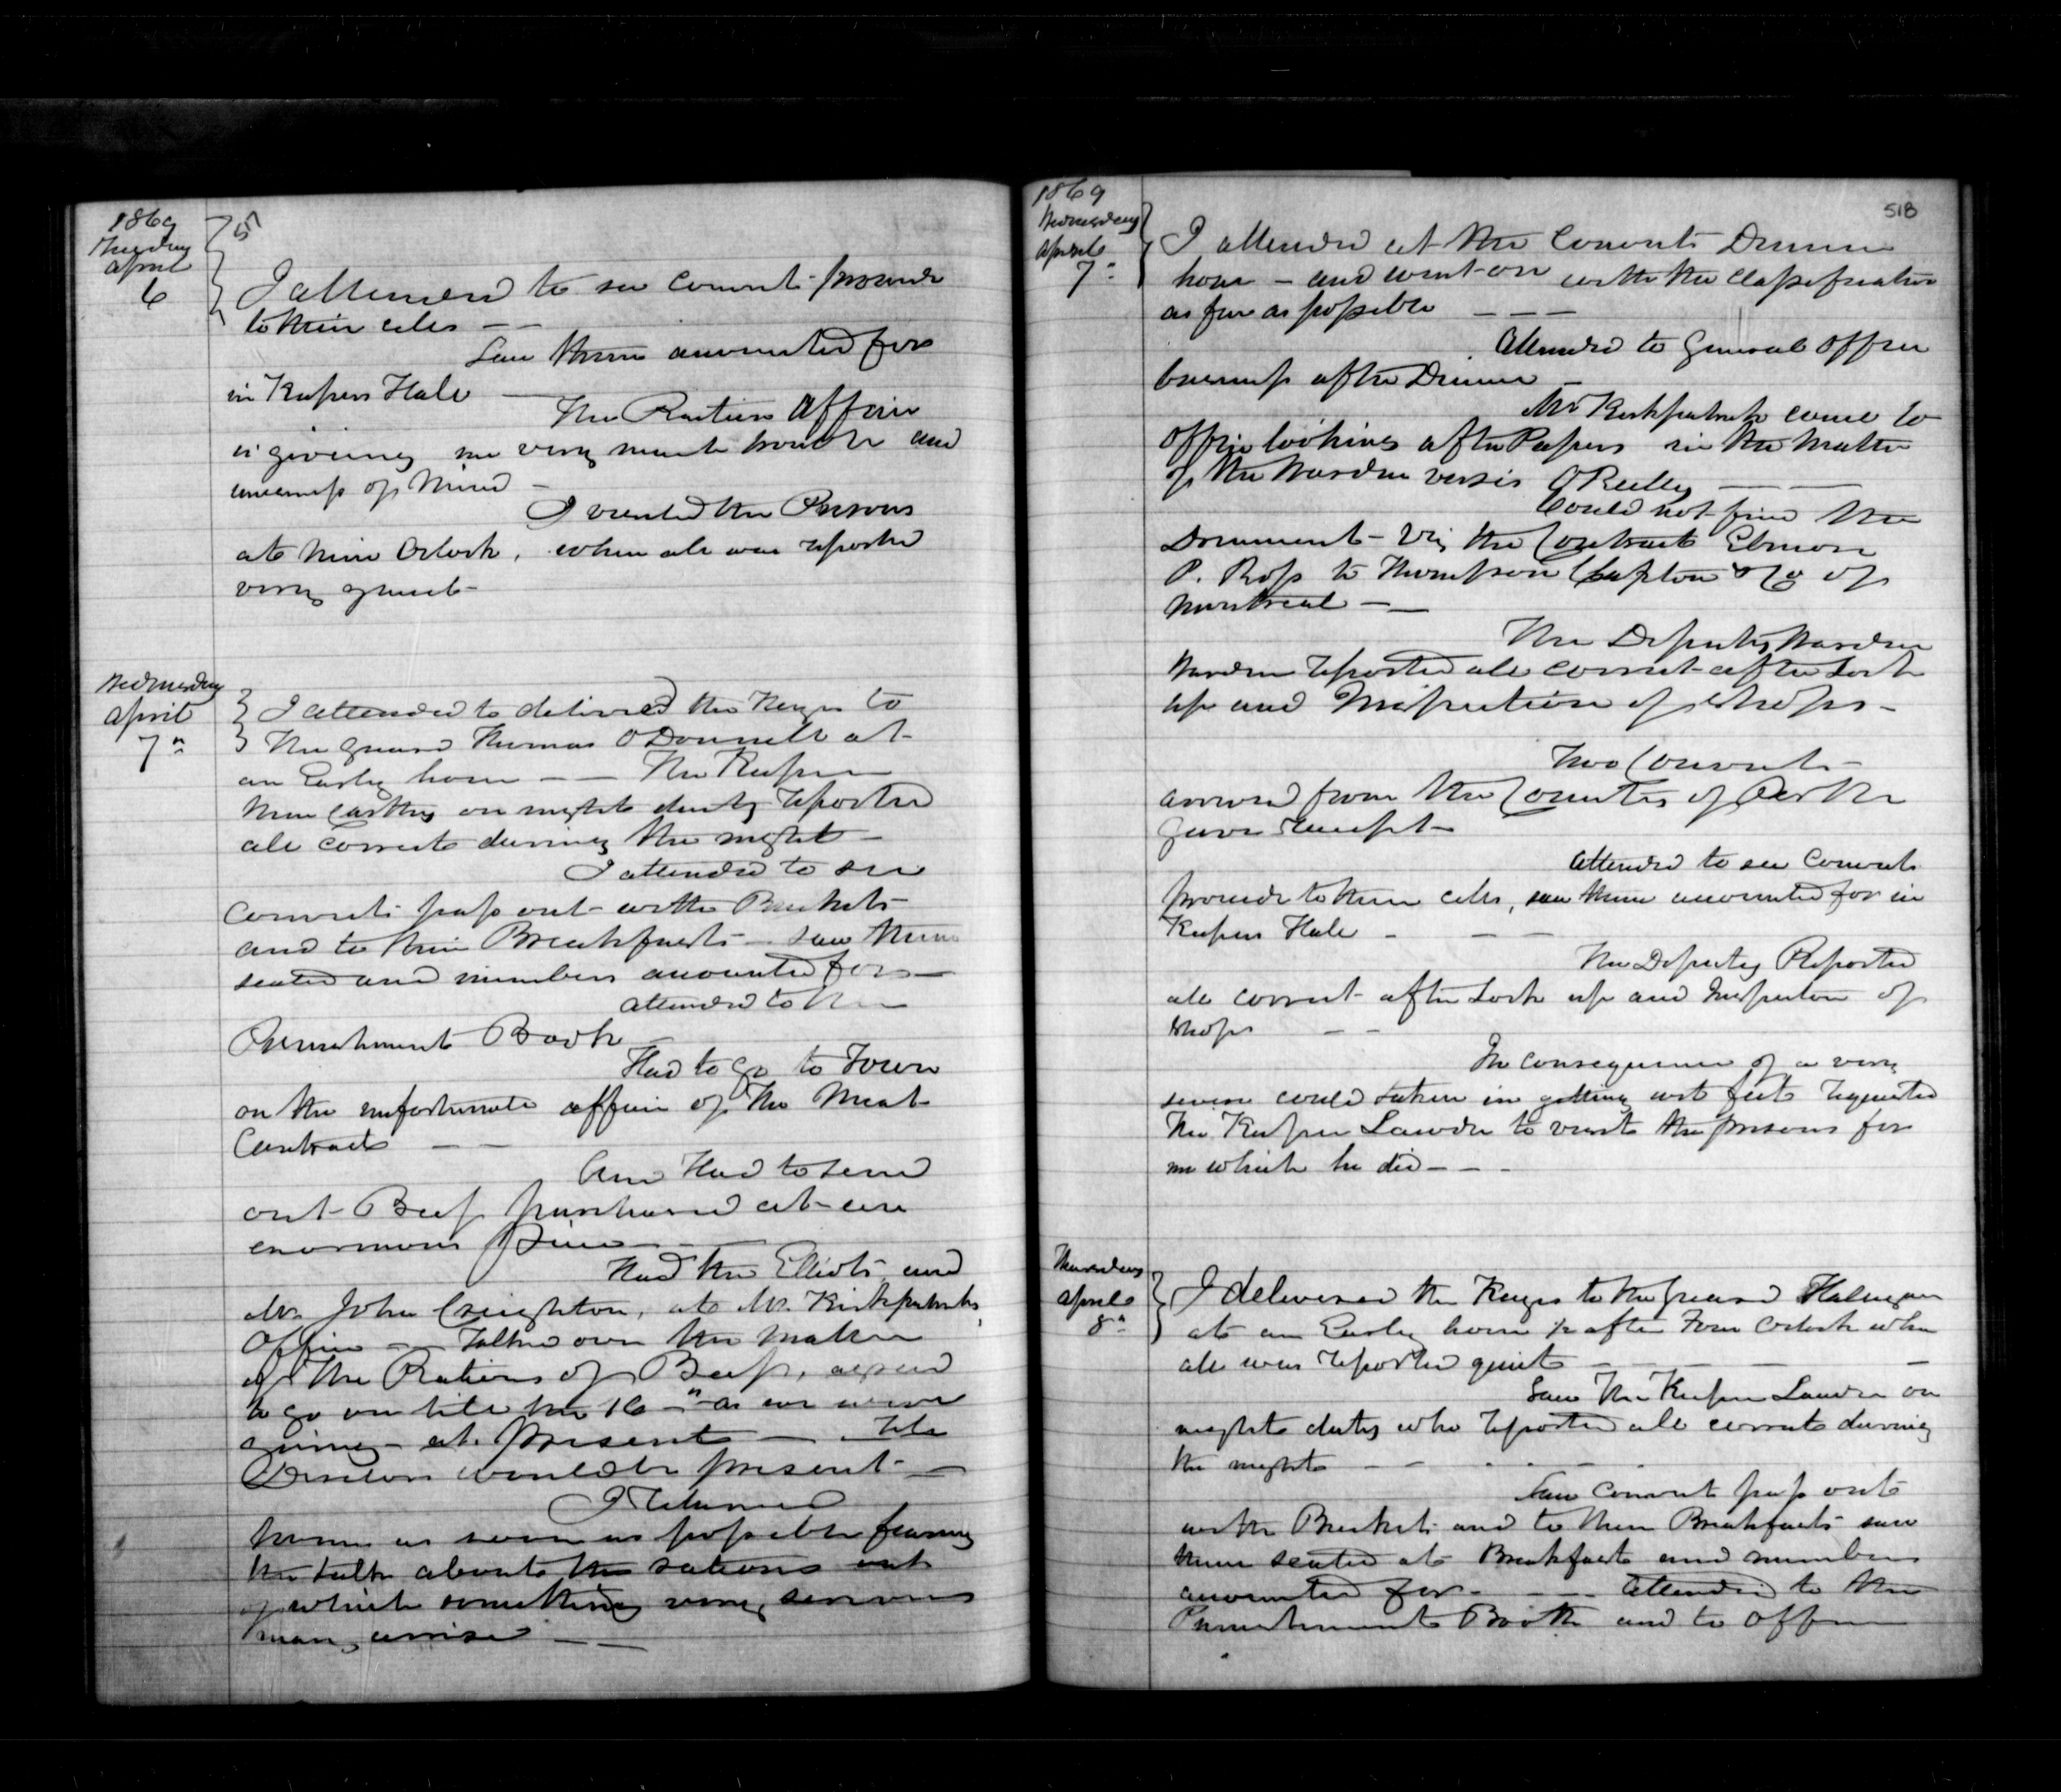 1869
Tuesday
April
6
I attended to see convicts proceede
to their cells — —
Saw them accounted for
in Keepers Hall —
The Rations Affair
is giveing me very much trouble and
uneasiness of Mind —
I visited the Prisons
at nine Oclock, when all was reported
very quiet —
Wednesday
April
7"
I attended to delivered the Keyes to
the guard Thomas O Donnell at
an Early hour — — The Keeper
Mc Carthy on night duty reported
all Correct dureing the night —
I attended to see
convicts pass out with Buckets
and to their Breakfasts — saw them
seated and numbers accounted for —
attended to the
Punishment Book —
Had to go to Town
on the unfortunate affair of the Meat
Contract — —
And Had to send
out Beef purchased at an
enormous Price —
Had the Elliots and
Mr. John Creighton, at Mr. Kirkpatricks
Office — Talked over the matter
of the Rations of Beef, agreed
to go on till the 16" as we were
going at present — till
Directors would be present —
I returned
home as soon as possible fearing
the talk about the rations out
of which something very serious
may arrise — —
1869
Wednesday
April
7"
518
I attended at the Convicts Dinner
hour — and went on with the Classification
as far as possible — — —
Attended to General Office
buseness after Dinner —
Mr Kirkpatrick came to
Office looking after Papers in the Matter
of the Warden versis O'Reilly — —
Could not find the
Document — Viz the Contract Elmore
P. Ross to Thompson Clapton & Co of
Montreal — —
The Deputy Warden
Warden reported all correct after Lock
up and Inspection of shops —
Two Convicts
arrived from the County of Perth
gave receipt —
Attended to see Convicts
proceede to their cells, saw them accounted for in
Keepers Hall — — —
The Deputy Reported
all correct after Lock up and Inspection of
shops — —
In consequence of a very
severe could taken in getting wet feet requested
The Keeper Lawder to visit the prisons for
me which he did — —
Thursday
April
8"
I delivered the Keyes to the Guard Halligan
at an Early hour ½ after Four Oclock when
all was reported quiet — — — —
Saw The Keeper Lawder on
night duty who reported all correct dureing
the night — — — —
Saw Convicts pass out
with Buckets and to their Breakfasts saw
them seated at Breakfast and numbers
accounted for — — — Attended to the
Punishment Book and to Office